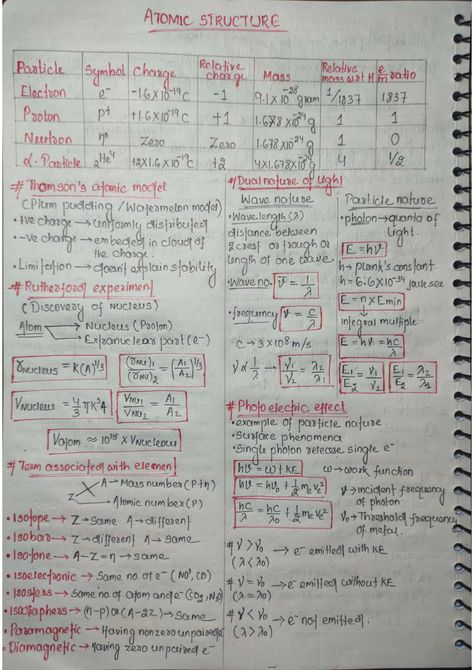 ATOMIC STRUCTURE
Particle Symbol Charge Relative charge Mass Relative mass w.r.t H e/m ratio
Electron e⁻ -1.6×10⁻¹⁹C -1 9.1×10⁻²⁸ gram 1/1837 1837
Proton P⁺ +1.6×10⁻¹⁹C +1 1.678×10⁻²⁴g 1 1
Neutron n⁰ Zero Zero 1.678×10⁻²⁴g 1 0
α-Particle ₂He⁴ +2×1.6×10⁻¹⁹C +2 4×1.678×10⁻²⁴g 4 1/2
# Thomson's atomic model
(Plum pudding / Watermelon model)
• +ve charge → uniformly distributed
• -ve charge → embeded in cloud of
the charge.
• Limitation → doesn't explain stability
# Rutherford experiment
(Discovery of Nucleus)
Atom → Nucleus (Proton)
→ Extranuclear part (e⁻)
r Nucleus = K(A)^1/3 (r Nu)₁/(r Nu)₂ = (A₁/A₂)^1/3
V Nucleus = 4/3 π K³A V Nu₁/V Nu₂ = A₁/A₂
V atom ≈ 10¹⁵ × V Nucleous
# Term associated with element
X A → Mass number (P+n)
Z → Atomic number (P)
• Isotope → Z → Same A → different
• Isobar → Z → different A → same
• Isotone → A-Z = n → same
• Isoelectronic → Same no. of e⁻
• Isosters → Same no. of atom and e⁻ (CO₂, N₂O)
• Isodiaphers → (n-p) or (A-2Z) → Same
• Paramagnetic → Having nonzero unpaired e⁻
• Diamagnetic → Having zero unpaired e⁻
# Dual nature of light
Wave nature
• Wavelength (λ)
distance between
2 crest or trough or
length of one wave.
• Wave no. ν̄ = 1/λ
• frequency ν = c/λ
C → 3×10⁸ m/s
ν ∝ 1/λ → ν₁/ν₂ = λ₂/λ₁
Particle nature
• photon → quanta of
light.
E = hν
h → plank's constant.
h = 6.6×10⁻³⁴ joule sec
E = n × Emin
↓
integral multiple
E = hν = hc/λ
E₁/E₂ = ν₁/ν₂ E₁/E₂ = λ₂/λ₁
# Photo electric effect
• example of particle nature.
• Surface phenomena
• Single photon release single e⁻
hν = ω + KE ω → work function
hν = hν₀ + 1/2 mₑvₑ²
hc/λ = hc/λ₀ + 1/2 mₑvₑ²
ν → incident frequency
of photon
ν₀ → Threshold frequency
of metal.
# ν > ν₀ → e⁻ emitted with KE
(λ < λ₀)
# ν = ν₀ → e⁻ emitted without KE
(λ = λ₀)
# ν < ν₀ → e⁻ not emitted.
(λ > λ₀)